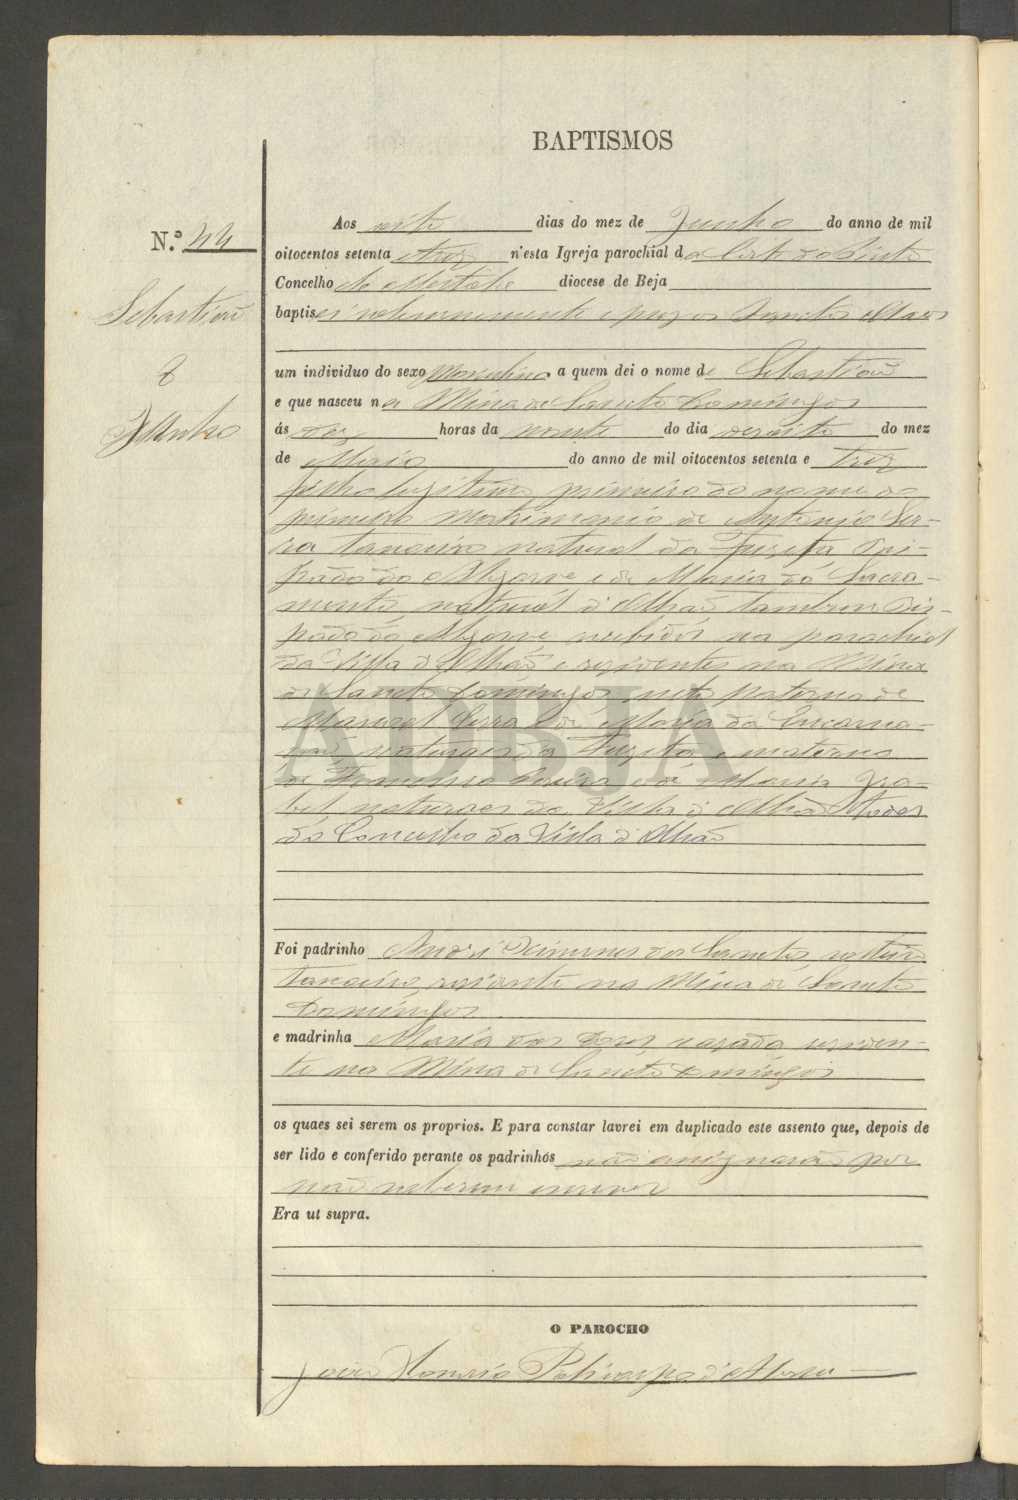 BAPTISMOS
N.º 44
Sebastião
8
Junho
Aos oito dias do mez de Junho do anno de mil
oitocentos setenta e trez n'esta Igreja parochial da Corte do Pinto
Concelho de Mertola diocese de Beja
baptisei solemnemente e puz os Sanctos Oleos
um individuo do sexo Masculino a quem dei o nome de Sebastião
e que nasceu na Mina de Sancto Domingos
ás horas da noute do dia dezoito do mez
de Maio do anno de mil oitocentos setenta e trez
filho legitimo primeiro do nome do
primeiro matrimonio de Antonio Ser-
ra tanoeiro natural da Fuzeta Bis-
pado do Algarve e de Maria do Sacra-
mento natural d'Olhão tambem Bis-
pado do Algarve recebidos na parochial
da Villa d'Olhão e residentes na Mina
de Sancto Domingos, neto paterno de
Manoel Serra e de Maria da Encarna-
ção naturaes da Fuzeta e materno
de Francisco e de Maria Iza-
bel naturaes da Villa d'Olhão todos
do Concelho da Villa d'Olhão
ADBJA
Foi padrinho André dos Sanctos, solteiro
tanoeiro, residente na Mina de Sancto
Domingos
e madrinha Maria das Dores, casada residen-
te na Mina de Sancto Domingos
os quaes sei serem os proprios. E para constar lavrei em duplicado este assento que, depois de
ser lido e conferido perante os padrinhos não assignarão por
não saberem escrever
Era ut supra.
O PAROCHO
Polycarpo d'Abreu